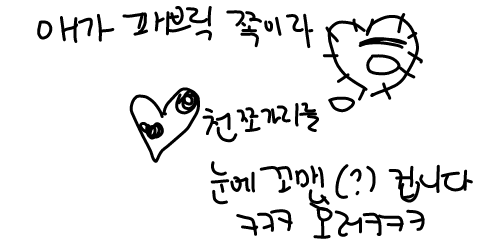 애가 패브릭 쪽이라
천쪼가리를
눈에 꼬맨(?) 겁니다
ㅋㅋㅋ 호러ㅋㅋㅋ